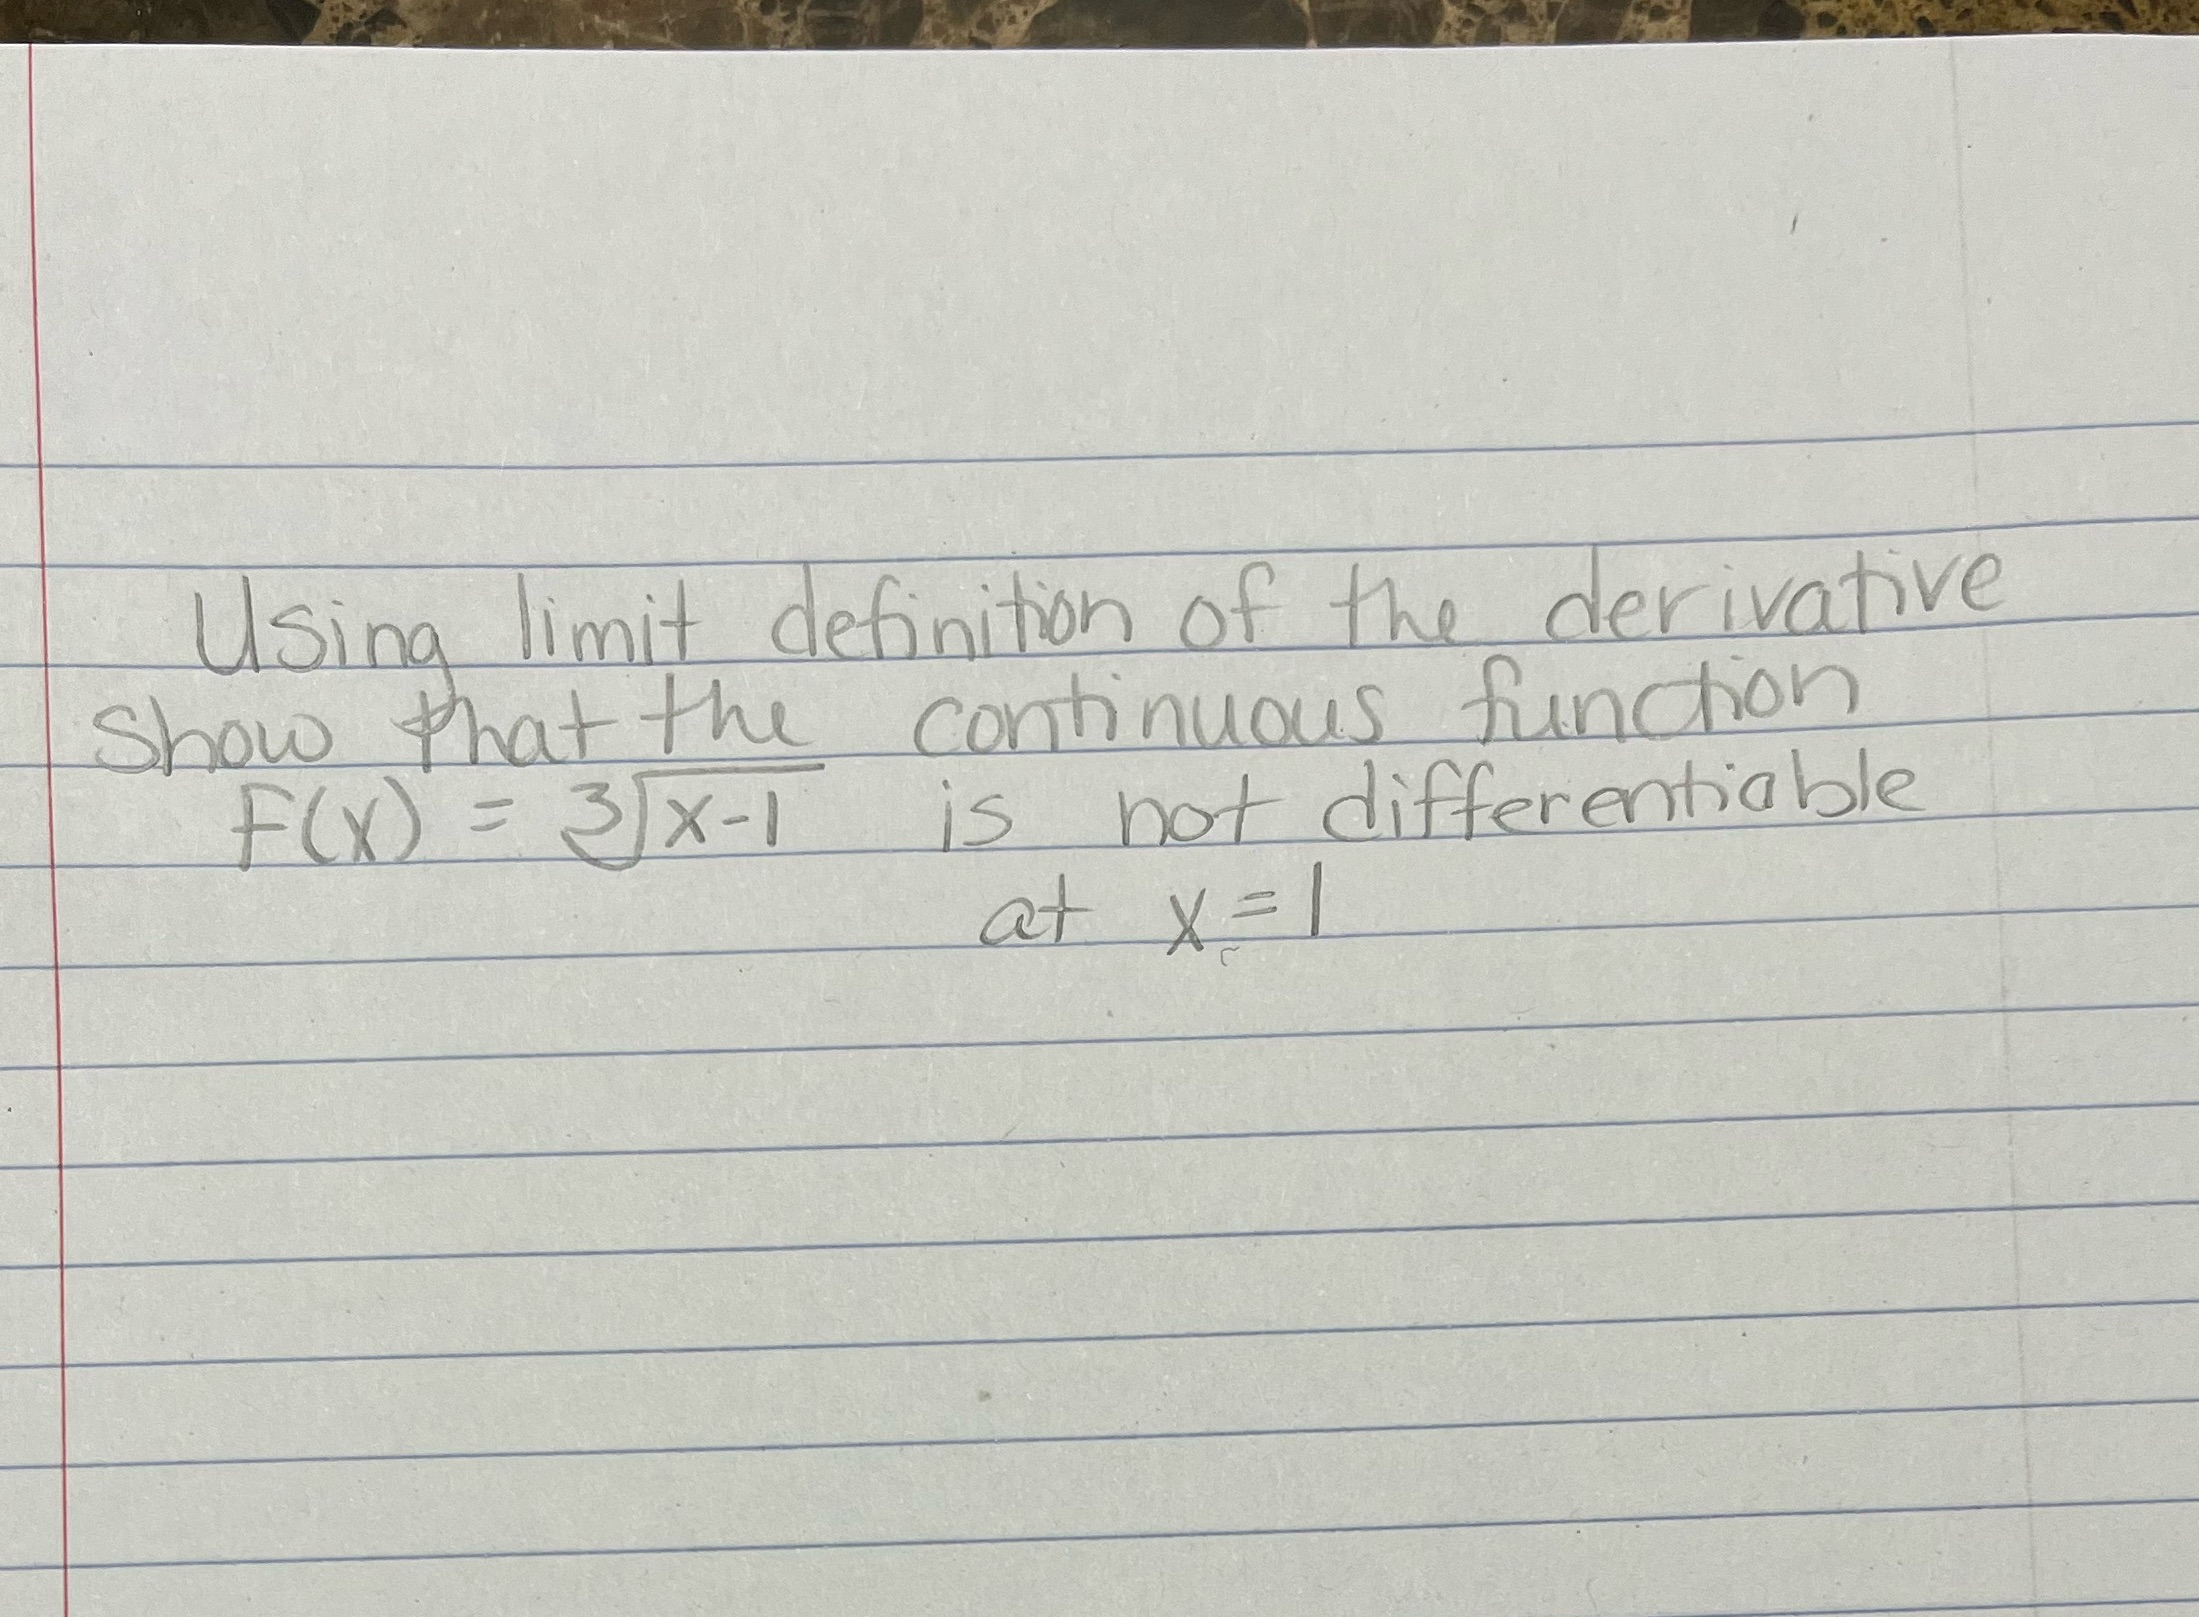 Using limit definition of the derivative
show that the continuous function
F(x) = ∛(x-1) is not differentiable
at x=1